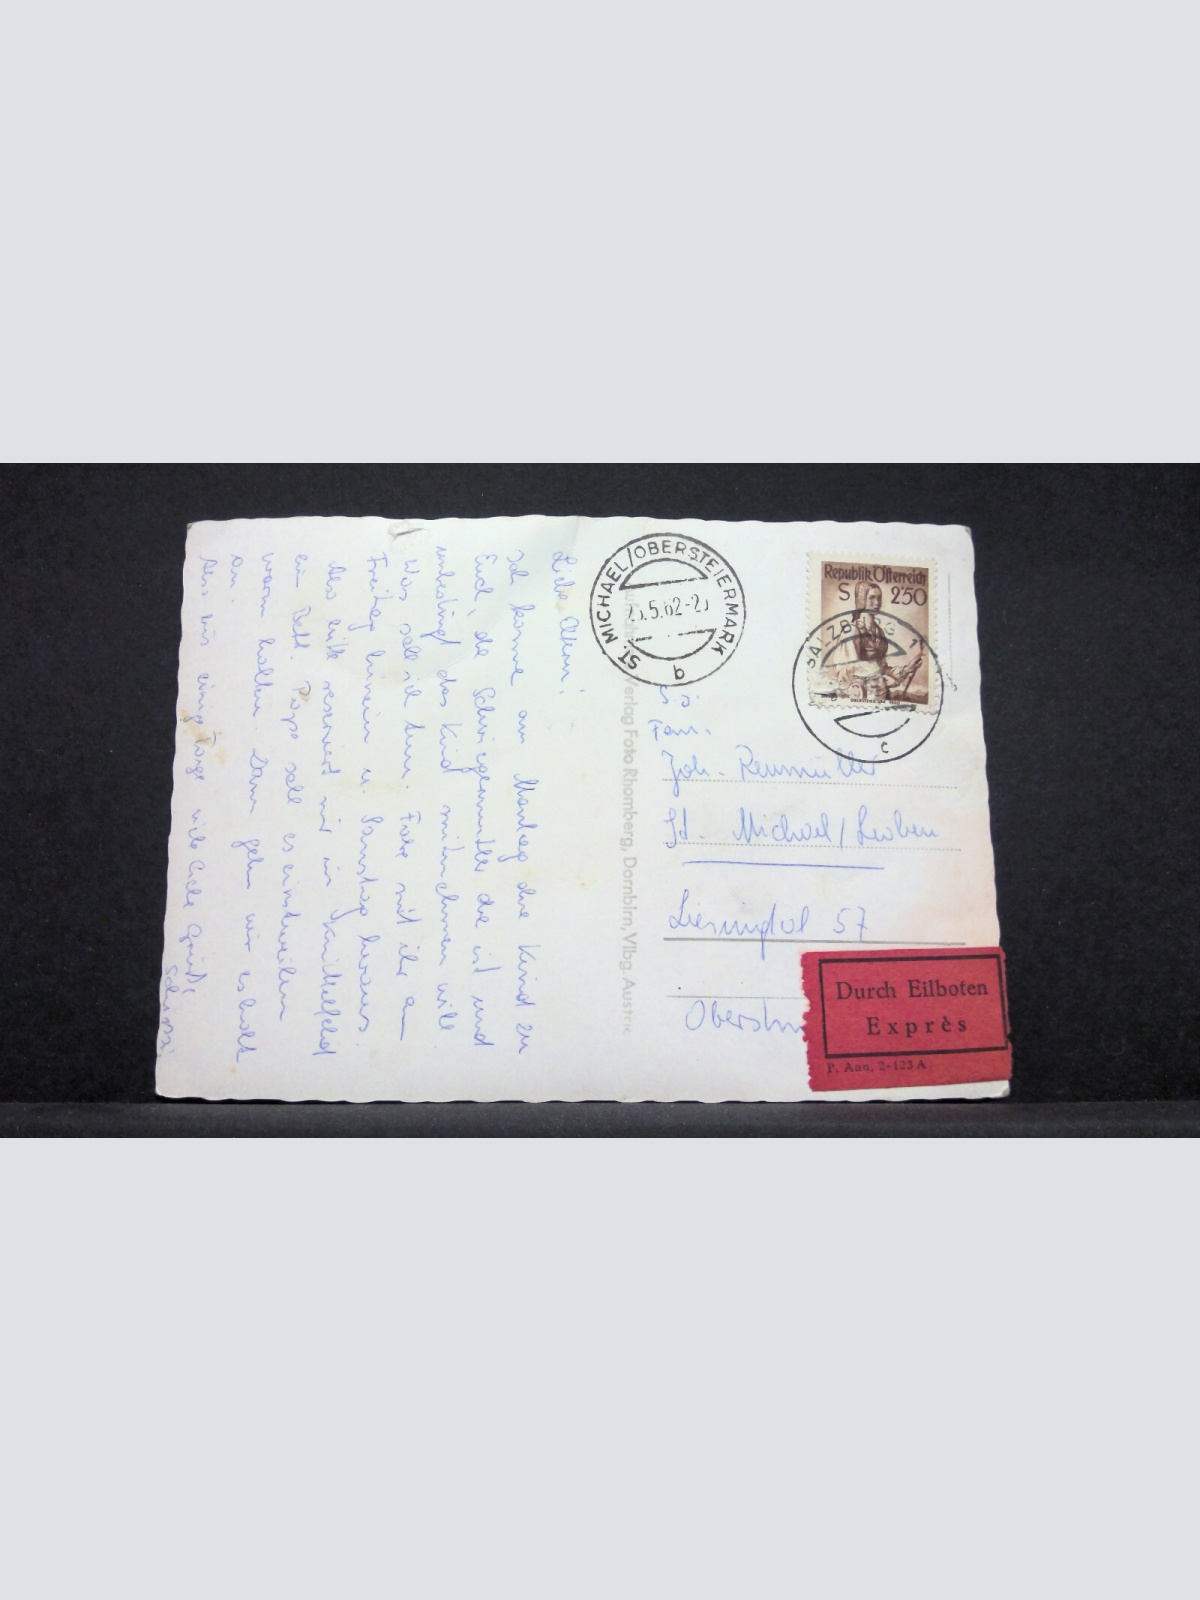 Liebe Eltern!
Ich komme am Montag ohne Kind zu
Euch, da Schwiegermutter da ist und
unbedingt das Kind mitnehmen will.
Was soll ich tun. Fahre mit ihr am
Freitag hinein u. Samstag heraus.
Also bitte reserviert mir in Knittelfeld
ein Bett. Papa soll es einstweilen
warm halten. Dann geben wir es halt
an.
Also auf einige Tage viele liebe Grüße
ST. MICHAEL/OBERSTEIERMARK
.5.62-2
q
Republik Österreich
S 2'50
SALZBURG 1
c
Verlag Foto Rhomberg, Dornbirn, Vlbg. Austria
Fam.
Joh. Renmüller
St. Michael/Leoben
Liesingtal 57
Durch Eilboten
Exprès
P. Aun. 2-123 A